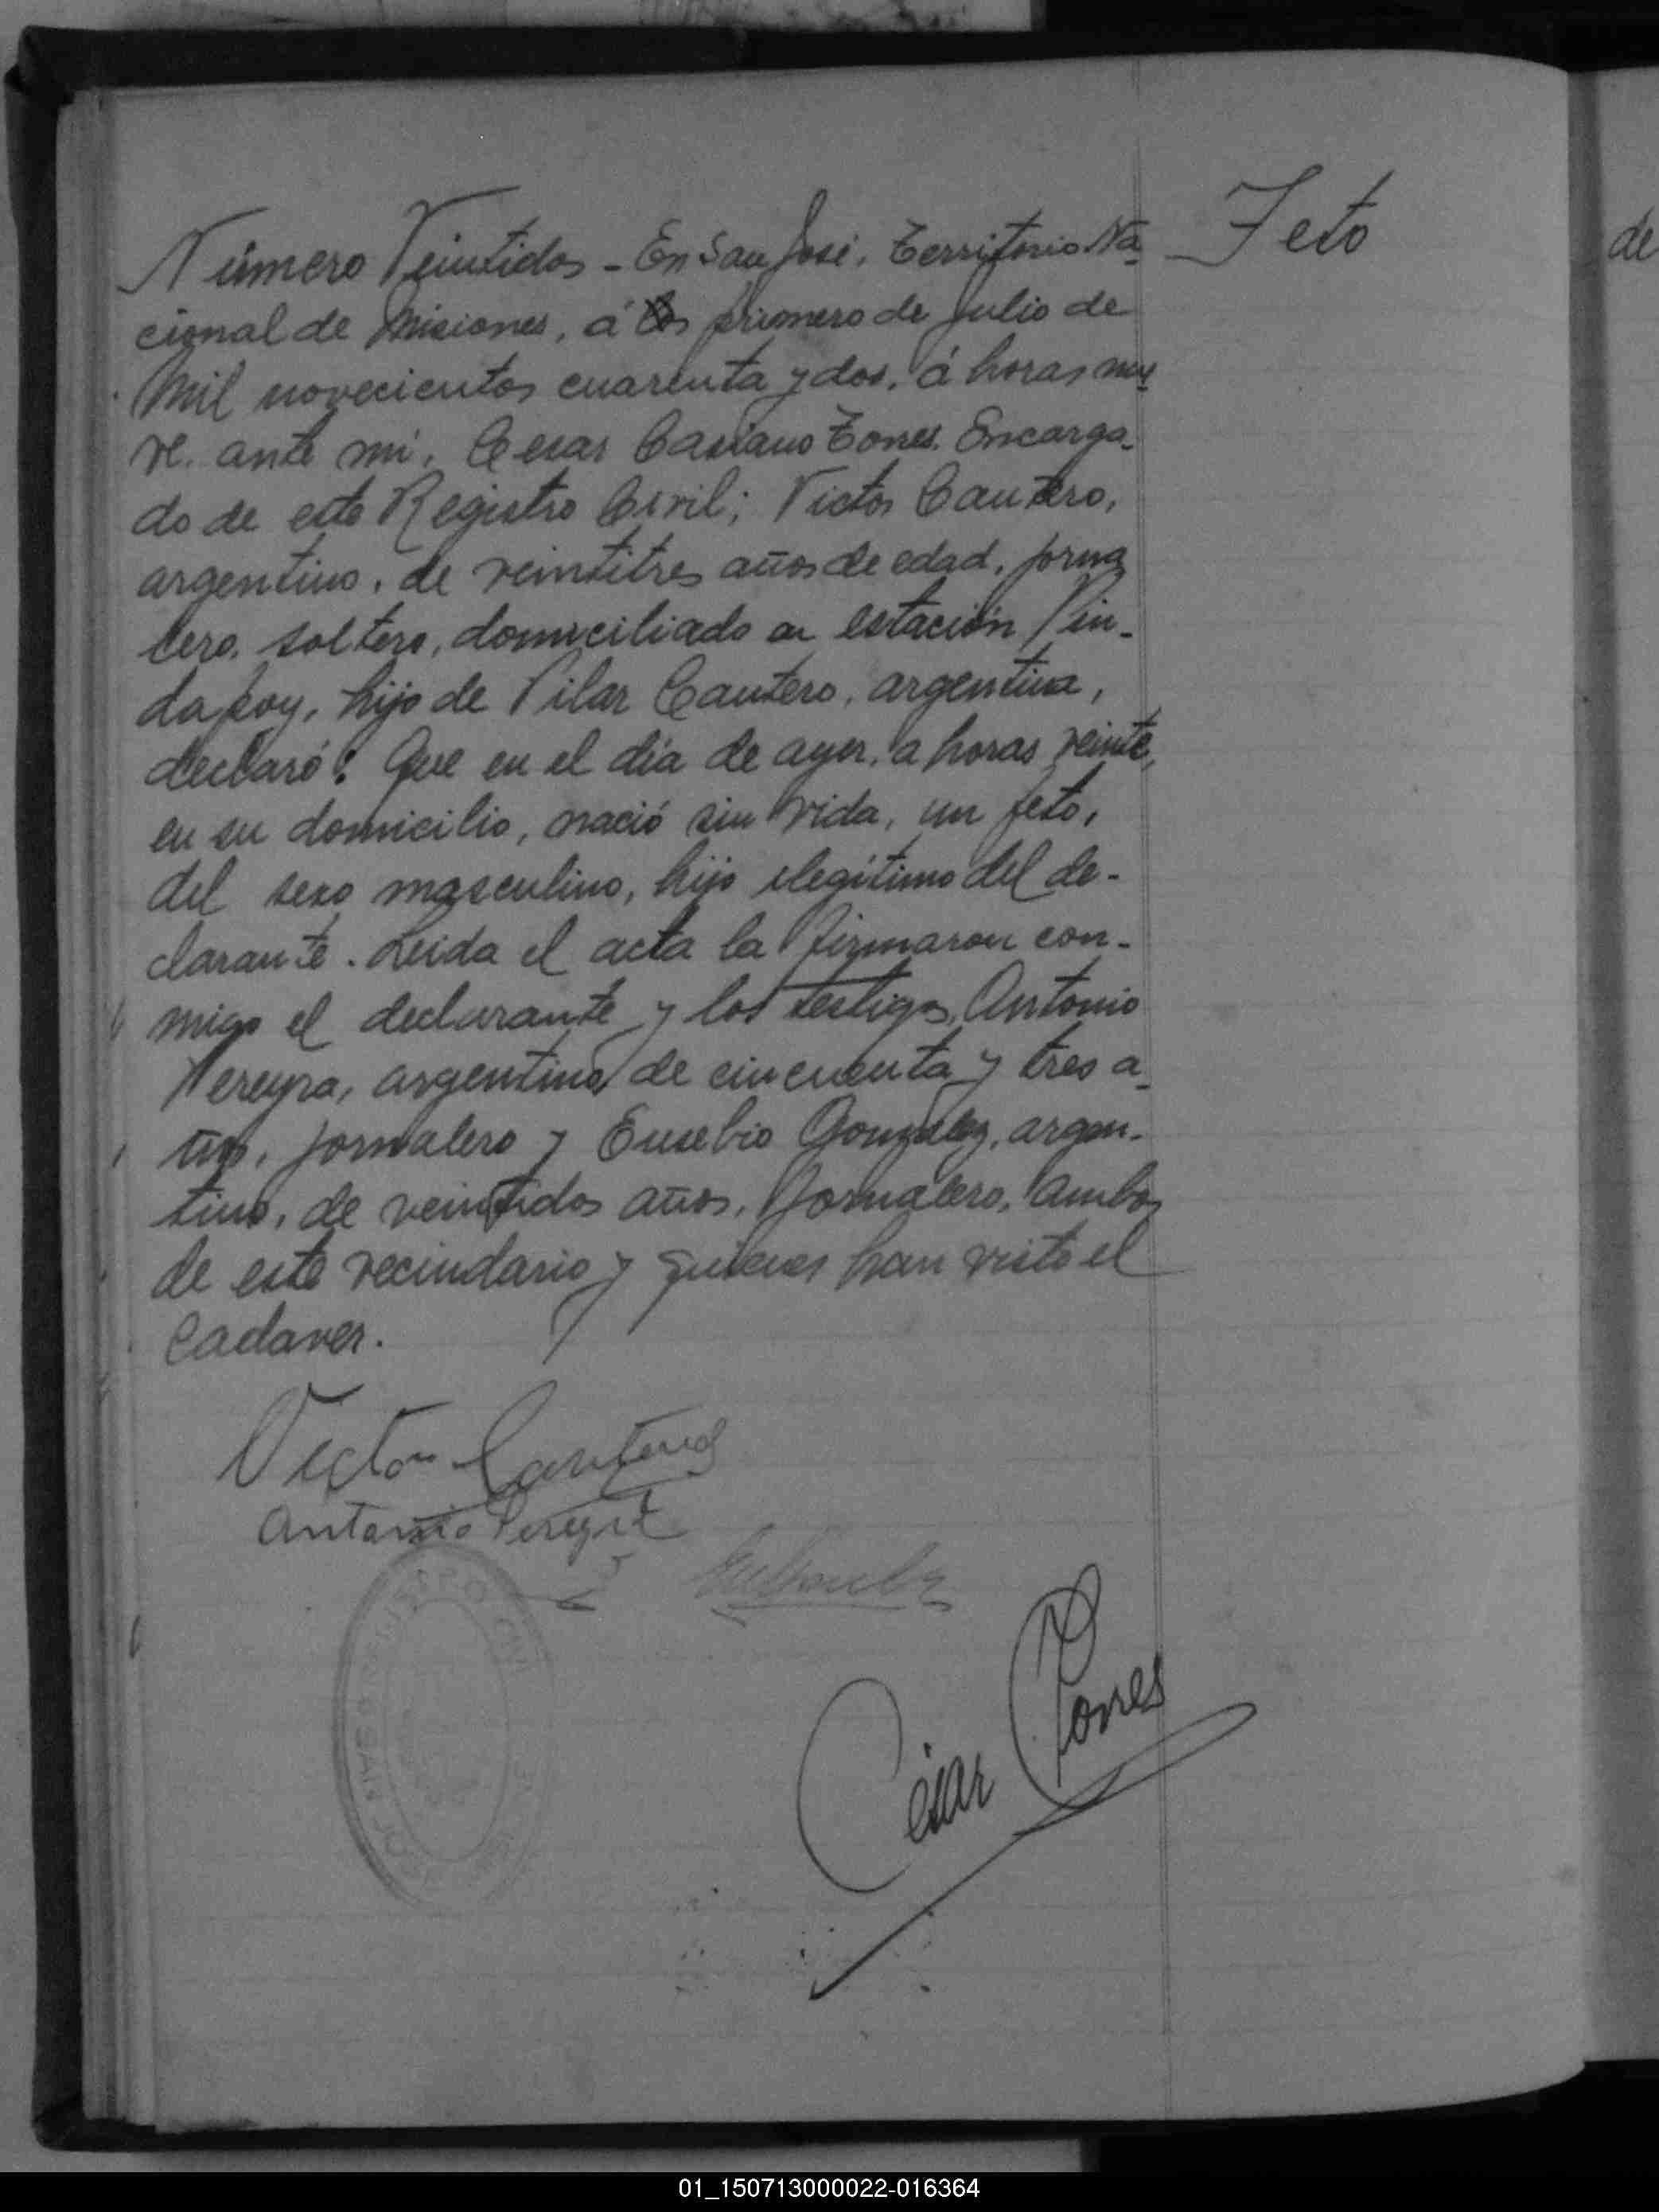 Feto
de
Número Veintidos - En San José, Territorio Na-
cional de Misiones, á los primero de Julio de
Mil novecientos cuarenta y dos, á horas nue-
ve. ante mi, Cesar Casiano Torres. Encarga-
do de este Registro Civil; Victor Cantero,
argentino, de veintitres años de edad, jorna
lero, soltero, domiciliado en estación Pin-
dapoy, hijo de Pilar Cantero, argentina,
declaró: Que en el día de ayer, a horas veinte,
en su domicilio, nació sin vida, un feto,
del sexo masculino, hijo ilegítimo del de-
clarante. Leida el acta la firmaron con-
migo el declarante y los testigos, Antonio
Pereyra, argentino de cincuenta y tres a-
ños, jornalero y Eusebio Gonzalez, argen-
tino, de veintidos años, Jornalero, ambos
de este vecindario y quienes han visto el
Cadaver.
Victor Cantero
Antonio Pereyra
César Torres
SAN JOSE
01_150713000022-016364